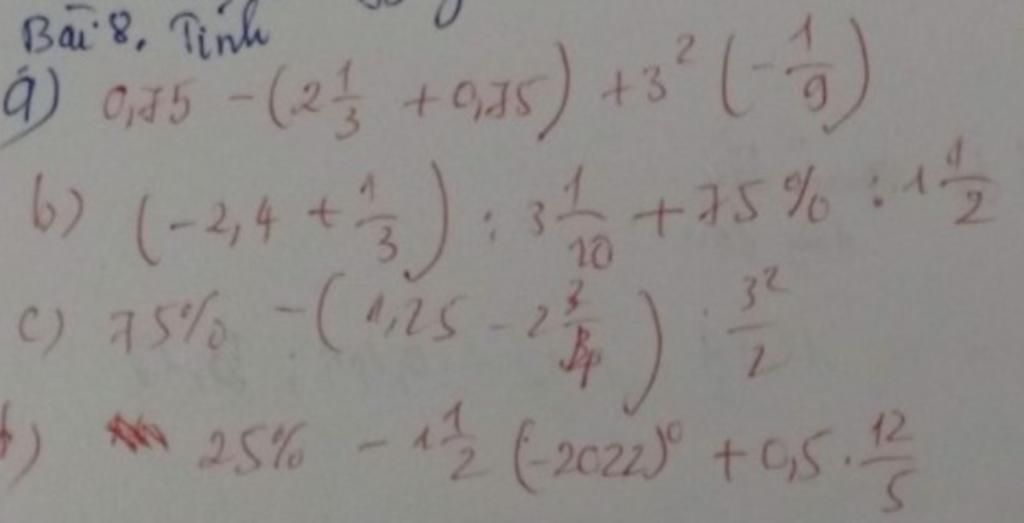 Bài 8. Tính
a) 0,75 - (2 1/3 + 0,75) + 3² (-1/9)
b) (-2,4 + 1/3) : 3 1/10 + 75% : 1 1/2
c) 75% - (1,25 - 2 3/4) : 3²/2
) 25% - 1 1/2 (-2022)⁰ + 0,5 . 12/5